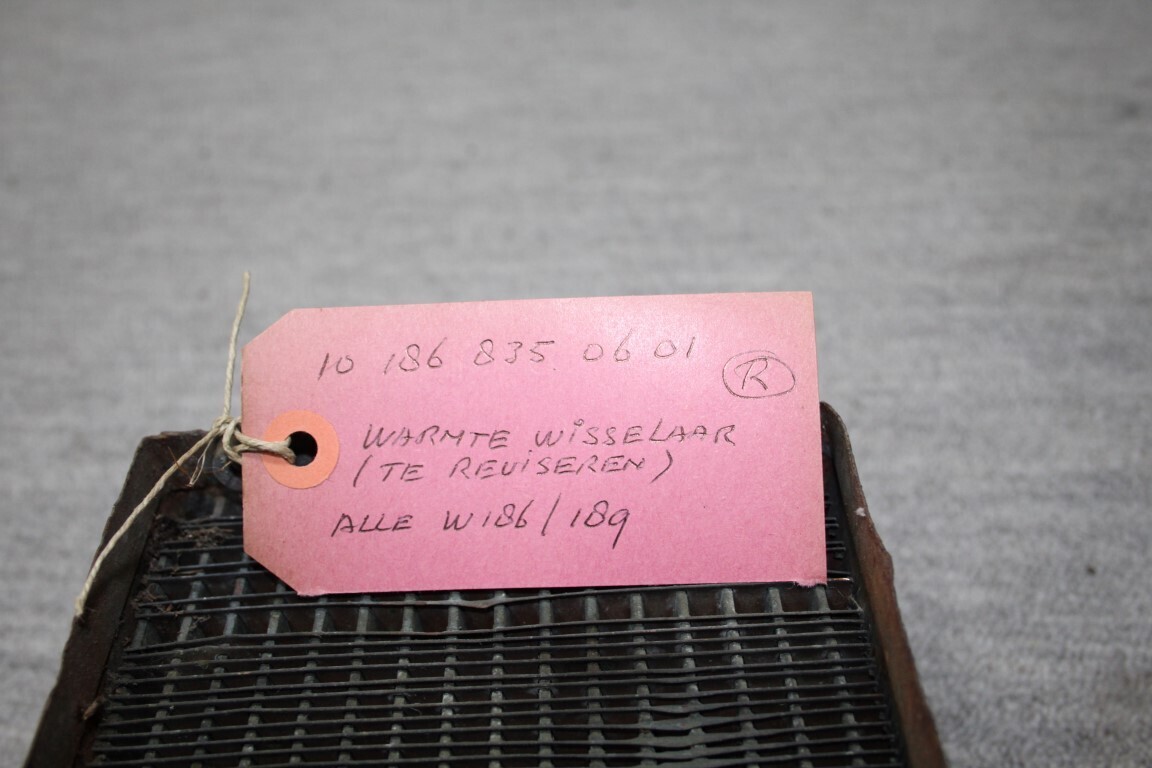 10 186 835 06 01
R
WARMTE WISSELAAR
(TE REVISEREN)
ALLE W186/189